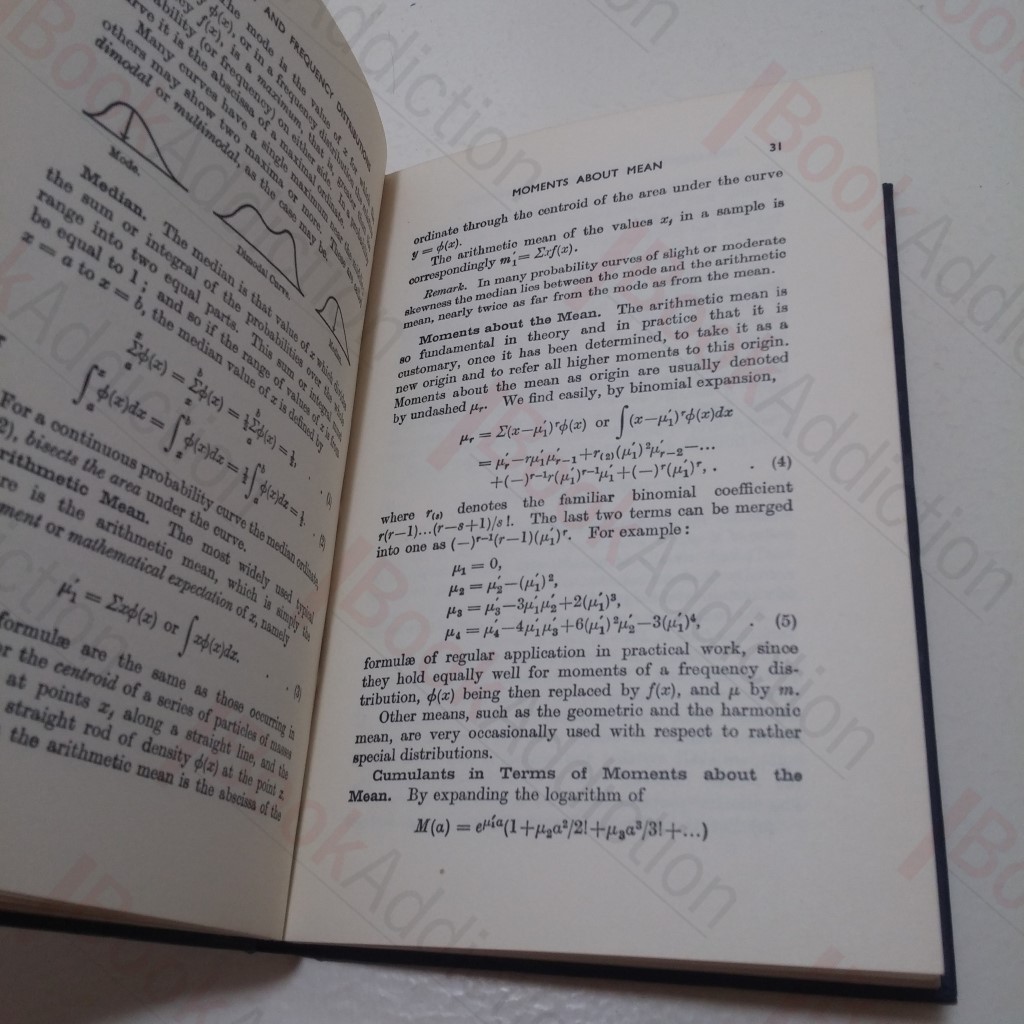 AND FREQUENCY DISTRIBUTION
The mode is the value of x for which
φ(x), or in a frequency distribution
f(x), is a maximum, that is,
probability (or frequency) on either side.
curve it is the abscissa of a maximal ordinate.
Many curves have a single maximum ordinate,
others may show two maxima or more.
dimodal or multimodal, as the case may be.
Mode.
Dimodal Curve.
Median.
Median. The median is that value of x which
the sum or integral of the probabilities over the whole
range into two equal parts. This sum or integral must
be equal to 1; and so if the range of values of x is from
x = a to x = b, the median value of x is defined by
Σφ(x) = Σφ(x) = ½Σφ(x) = ½,
∫φ(x)dx = ∫φ(x)dx = ½∫φ(x)dx = ½.
For a continuous probability curve the median ordinate
2), bisects the area under the curve.
rithmetic Mean. The most widely used typical
re is the arithmetic mean, which is simply the
ment or mathematical expectation of x, namely
μ′₁ = Σxφ(x) or ∫xφ(x)dx. . . (3)
formulæ are the same as those occurring in
or the centroid of a series of particles of masses
at points xⱼ along a straight line, and the
straight rod of density φ(x) at the point x.
the arithmetic mean is the abscissa of the
MOMENTS ABOUT MEAN 31
ordinate through the centroid of the area under the curve
y = φ(x).
The arithmetic mean of the values xⱼ in a sample is
correspondingly m′₁ = Σxf(x).
Remark. In many probability curves of slight or moderate
skewness the median lies between the mode and the arithmetic
mean, nearly twice as far from the mode as from the mean.
Moments about the Mean. The arithmetic mean is
so fundamental in theory and in practice that it is
customary, once it has been determined, to take it as a
new origin and to refer all higher moments to this origin.
Moments about the mean as origin are usually denoted
by undashed μᵣ. We find easily, by binomial expansion,
μᵣ = Σ(x−μ′₁)ʳφ(x) or ∫(x−μ′₁)ʳφ(x)dx
= μ′ᵣ−rμ′₁μ′ᵣ₋₁+r₍₂₎(μ′₁)²μ′ᵣ₋₂−...
+(−)ʳ⁻¹r(μ′₁)ʳ⁻¹μ′₁+(−)ʳ(μ′₁)ʳ, . . (4)
where r₍ₛ₎ denotes the familiar binomial coefficient
r(r−1)...(r−s+1)/s!. The last two terms can be merged
into one as (−)ʳ⁻¹(r−1)(μ′₁)ʳ. For example:
μ₁ = 0,
μ₂ = μ′₂−(μ′₁)²,
μ₃ = μ′₃−3μ′₁μ′₂+2(μ′₁)³,
μ₄ = μ′₄−4μ′₁μ′₃+6(μ′₁)²μ′₂−3(μ′₁)⁴, . (5)
formulæ of regular application in practical work, since
they hold equally well for moments of a frequency dis-
tribution, φ(x) being then replaced by f(x), and μ by m.
Other means, such as the geometric and the harmonic
mean, are very occasionally used with respect to rather
special distributions.
Cumulants in Terms of Moments about the
Mean. By expanding the logarithm of
M(a) = e^μ′₁a(1+μ₂a²/2!+μ₃a³/3!+...)
BookAddiction